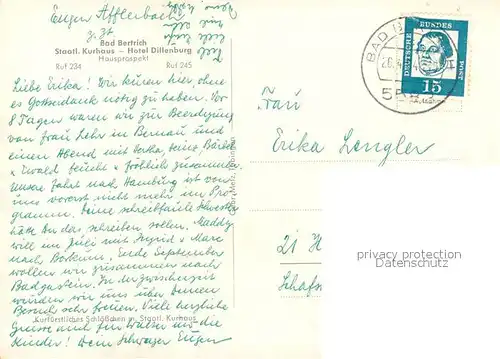 Eugen Afflerbach
z. Zt.
Bad Bertrich
Staatl. Kurhaus – Hotel Dillenburg
Hausprospekt
Ruf 234 Ruf 245
Liebe Erika! Wir kuren hier, ohne
es Gottseidank nötig zu haben. Vor
8 Tagen waren wir zur Beerdigung
von Frau Lehr in Bernau und
einen Abend mit Hertha, Heinz, Bärbel
+ Ewald feucht + fröhlich zusammen.
Unsere Fahrt nach Hamburg ist von
uns vorerst nicht mehr im Pro-
gramm. Deine schreibfaule Schwester
hätte Dir das schreiben sollen. Maddy
will im Juli mit Ingrid + Marc
nach Borkum. Ende September
wollen wir zusammen nach
Badgastein. In der Zwischenzeit
würden wir uns über Deinen
Besuch sehr freuen. Viele herzliche
Grüsse auch für Walter und die
Kinder! Dein Schwager Eugen
Kurfürstliches Schlößchen m. Staatl. Kurhaus
BAD
DEUTSCHE BUNDES POST
15
Frau
Erika Lengler
21 H
Schafs
privacy protection
Datenschutz